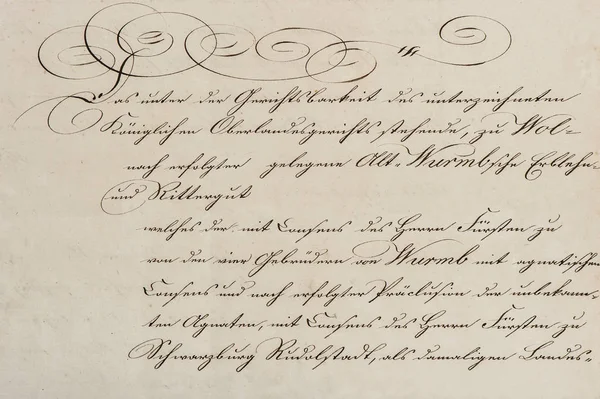 Das unter der Gerichtsbarkeit des unterzeichneten
Königlichen Oberlandesgerichts stehende, zu Wol-
nach erfolgter gelegene Alt-Wurmbsche Erblehn-
und Rittergut
welches der mit Consens des Herrn Fürsten zu
von den vier Gebrüdern von Wurmb mit agnatischen
Consens und nach erfolgter Präclusion der unbekann-
ten Agnaten, mit Consens des Herrn Fürsten zu
Schwarzburg Rudolstadt, als damaligen Landes-